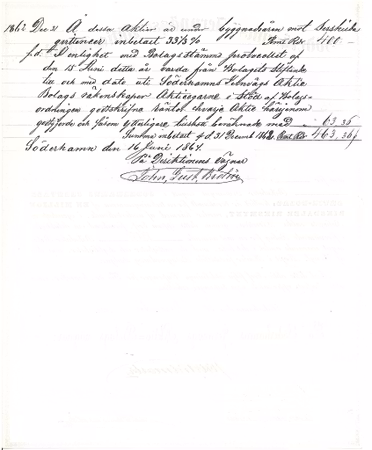 1862 Dec 31 Å dessa Aktier är under byggnadsåren emot serskilda
qvittencer inbetalt 33 1/3 % Rmt Rdr 400 —
I enlighet med Bolagsstämmo protocollet af
den 15 Juni detta år varda från Bolagets
till och med dato uti Söderhamns Jernvägs Aktie
Bolags räkenskaper Aktieegarne i stöd af Bolags-
ordningen godtskrifna räntor hvarje Aktie härigenom
godtgjorde och såsom ytterligare beräknade med 63, 36
Summa inbetalt d 31 Decemb 1862 Rmt Rdr 463, 36
Söderhamn den 16 Juni 1864.
På Direktionens Vägnar
John, Gust,